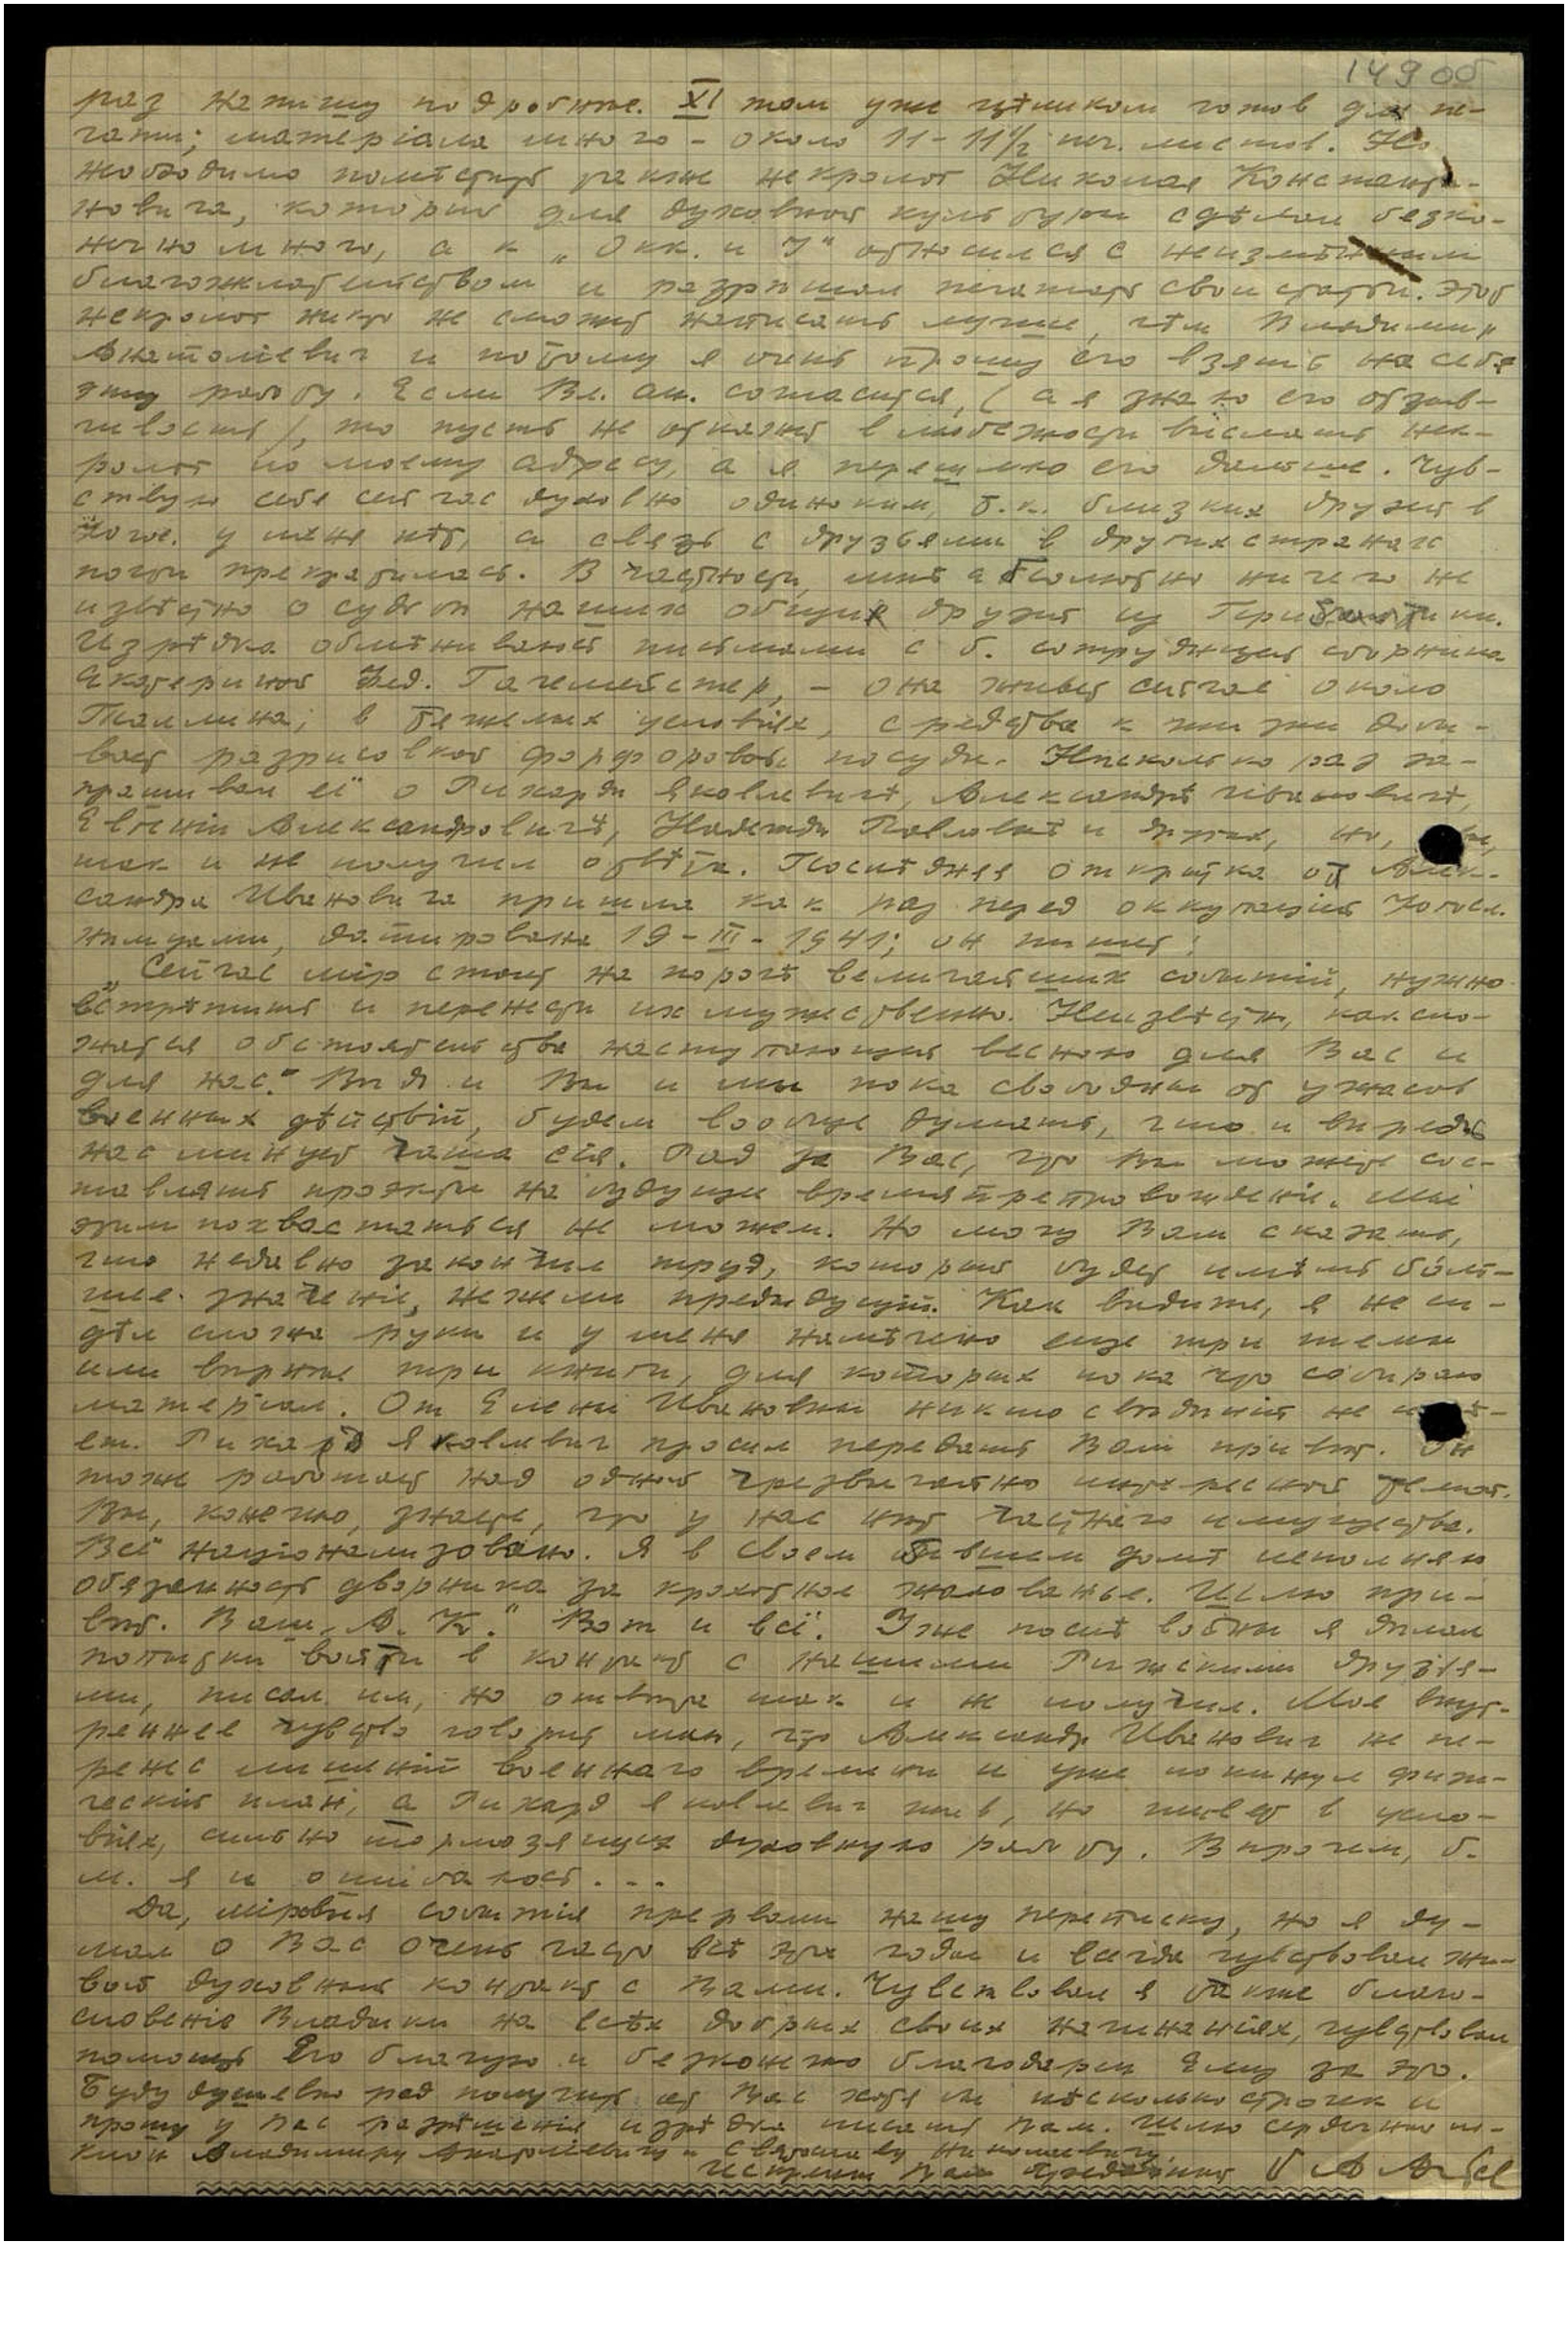 149об
раз напишу подробнѣе. XI том уже цѣликом готов для пе-
чати; матеріала много – около 11 – 11½ печ. листов. Но
необходимо помѣстить также некролог Николая Константи-
новича, который для духовной культуры сдѣлал безко-
нечно много, а к „Окк. и I“ относился с неизмѣнным
благожелательством и разрѣшал печатать свои статьи. Этот
некролог никто не сможет написать лучше, чѣм Владимир
Анатоліевич и потому я очень прошу его взять на себя
эту работу. Если Вл. Ан. согласится, (а я знаю его отзыв-
чивость), то пусть не откажет в любезности выслать нек-
ролог по моему адресу, а я перешлю его дальше. Чув-
ствую себя сейчас духовно одиноким, т.к. близких друзей в
Югосл. у меня нѣт, а связь с друзьями в других странах
почти прекратилась. В частности, мнѣ абсолютно ничего не
извѣстно о судьбѣ наших общих друзей из Прибалтики.
Изрѣдка обмѣниваюсь письмами с б. сотрудницей сборника
Екатериной Фед. Гагемейстер, – она живет сейчас около
Таллина, в тяжелых условіях, средства к жизни добы-
вает разрисовкой фарфоровой посуды. Нѣсколько раз за-
прашивал её о Рихардѣ Яковлевичѣ, Александрѣ Ивановичѣ,
Евгеніи Александровичѣ, Надеждѣ Павловнѣ и других, но,
так и не получил отвѣта. Послѣдняя открытка от Алек-
сандра Ивановича пришла как раз перед оккупацией Югосл.
нѣмцами, датирована 19-III-1941; он пишет:
„Сейчас мір стоит на порогѣ величайших событій, нужно
встрѣтить и перенести их мужественно. Неизвѣстно, как сло-
жатся обстоятельства наступающей весною для Вас и
для нас. Вѣдь и Вы и мы пока свободны от ужасов
военных дѣйствій, будем вообще думать, что и впредь
нас минует чаша сія. Рад за Вас, что Вы можете сос-
тавлять проэкты на будущее времяпрепровожденіе. Мы
этим похвастаться не можем. Но могу Вам сказать,
что недавно закончил труд, который будет имѣть боль-
шее значеніе, нежели предыдущій. Как видите, я не си-
дѣл сложа руки и у меня намѣчено еще три темы
или вѣрнѣе три книги, для которых пока что собираю
матеріал. От Елены Ивановны никто свѣдѣній не имѣ-
ет. Рихард Яковлевич просил передать Вам привѣт. Он
тоже работает над одной чрезвычайно интересной темой.
Вы, конечно, знаете, что у нас нѣт частнаго имущества.
Всё націонализовано. Я в своем бывшем домѣ исполняю
обязанность дворника за крохотное жалованье. Шлю при-
вѣт. Ваш А. К.“ Вот и всё. Уже послѣ войны я дѣлал
попытки войти в контакт с нашими Рижскими друзья-
ми, писал им, но отвѣта так и не получил. Мое внут-
реннее чувство говорит мнѣ, что Александр Иванович не пе-
ренес лишеній военнаго времени и уже покинул физи-
ческій план, а Рихард Яковлевич жив, но живет в усло-
віях, сильно тормозящих духовную работу. Впрочем, б.
м. я и ошибаюсь....
Да, міровыя событія прервали нашу переписку, но я ду-
мал о Вас очень часто всѣ эти годы и всегда чувствовал жи-
вой духовный контакт с Вами. Чувствовал я также благо-
словеніе Владыки на всѣх добрых своих начинаніях, чувствовал
помощь Его благую и безконечно благодарен Ему за это.
Буду душевно рад получить от Вас хотя бы нѣсколько строчек и
прошу у Вас разрѣшенія изрѣдка писать Вам. Шлю сердечный по-
клон Владимиру Анатоліевичу и Святославу Николаевичу.
Искренне Ваш преданный